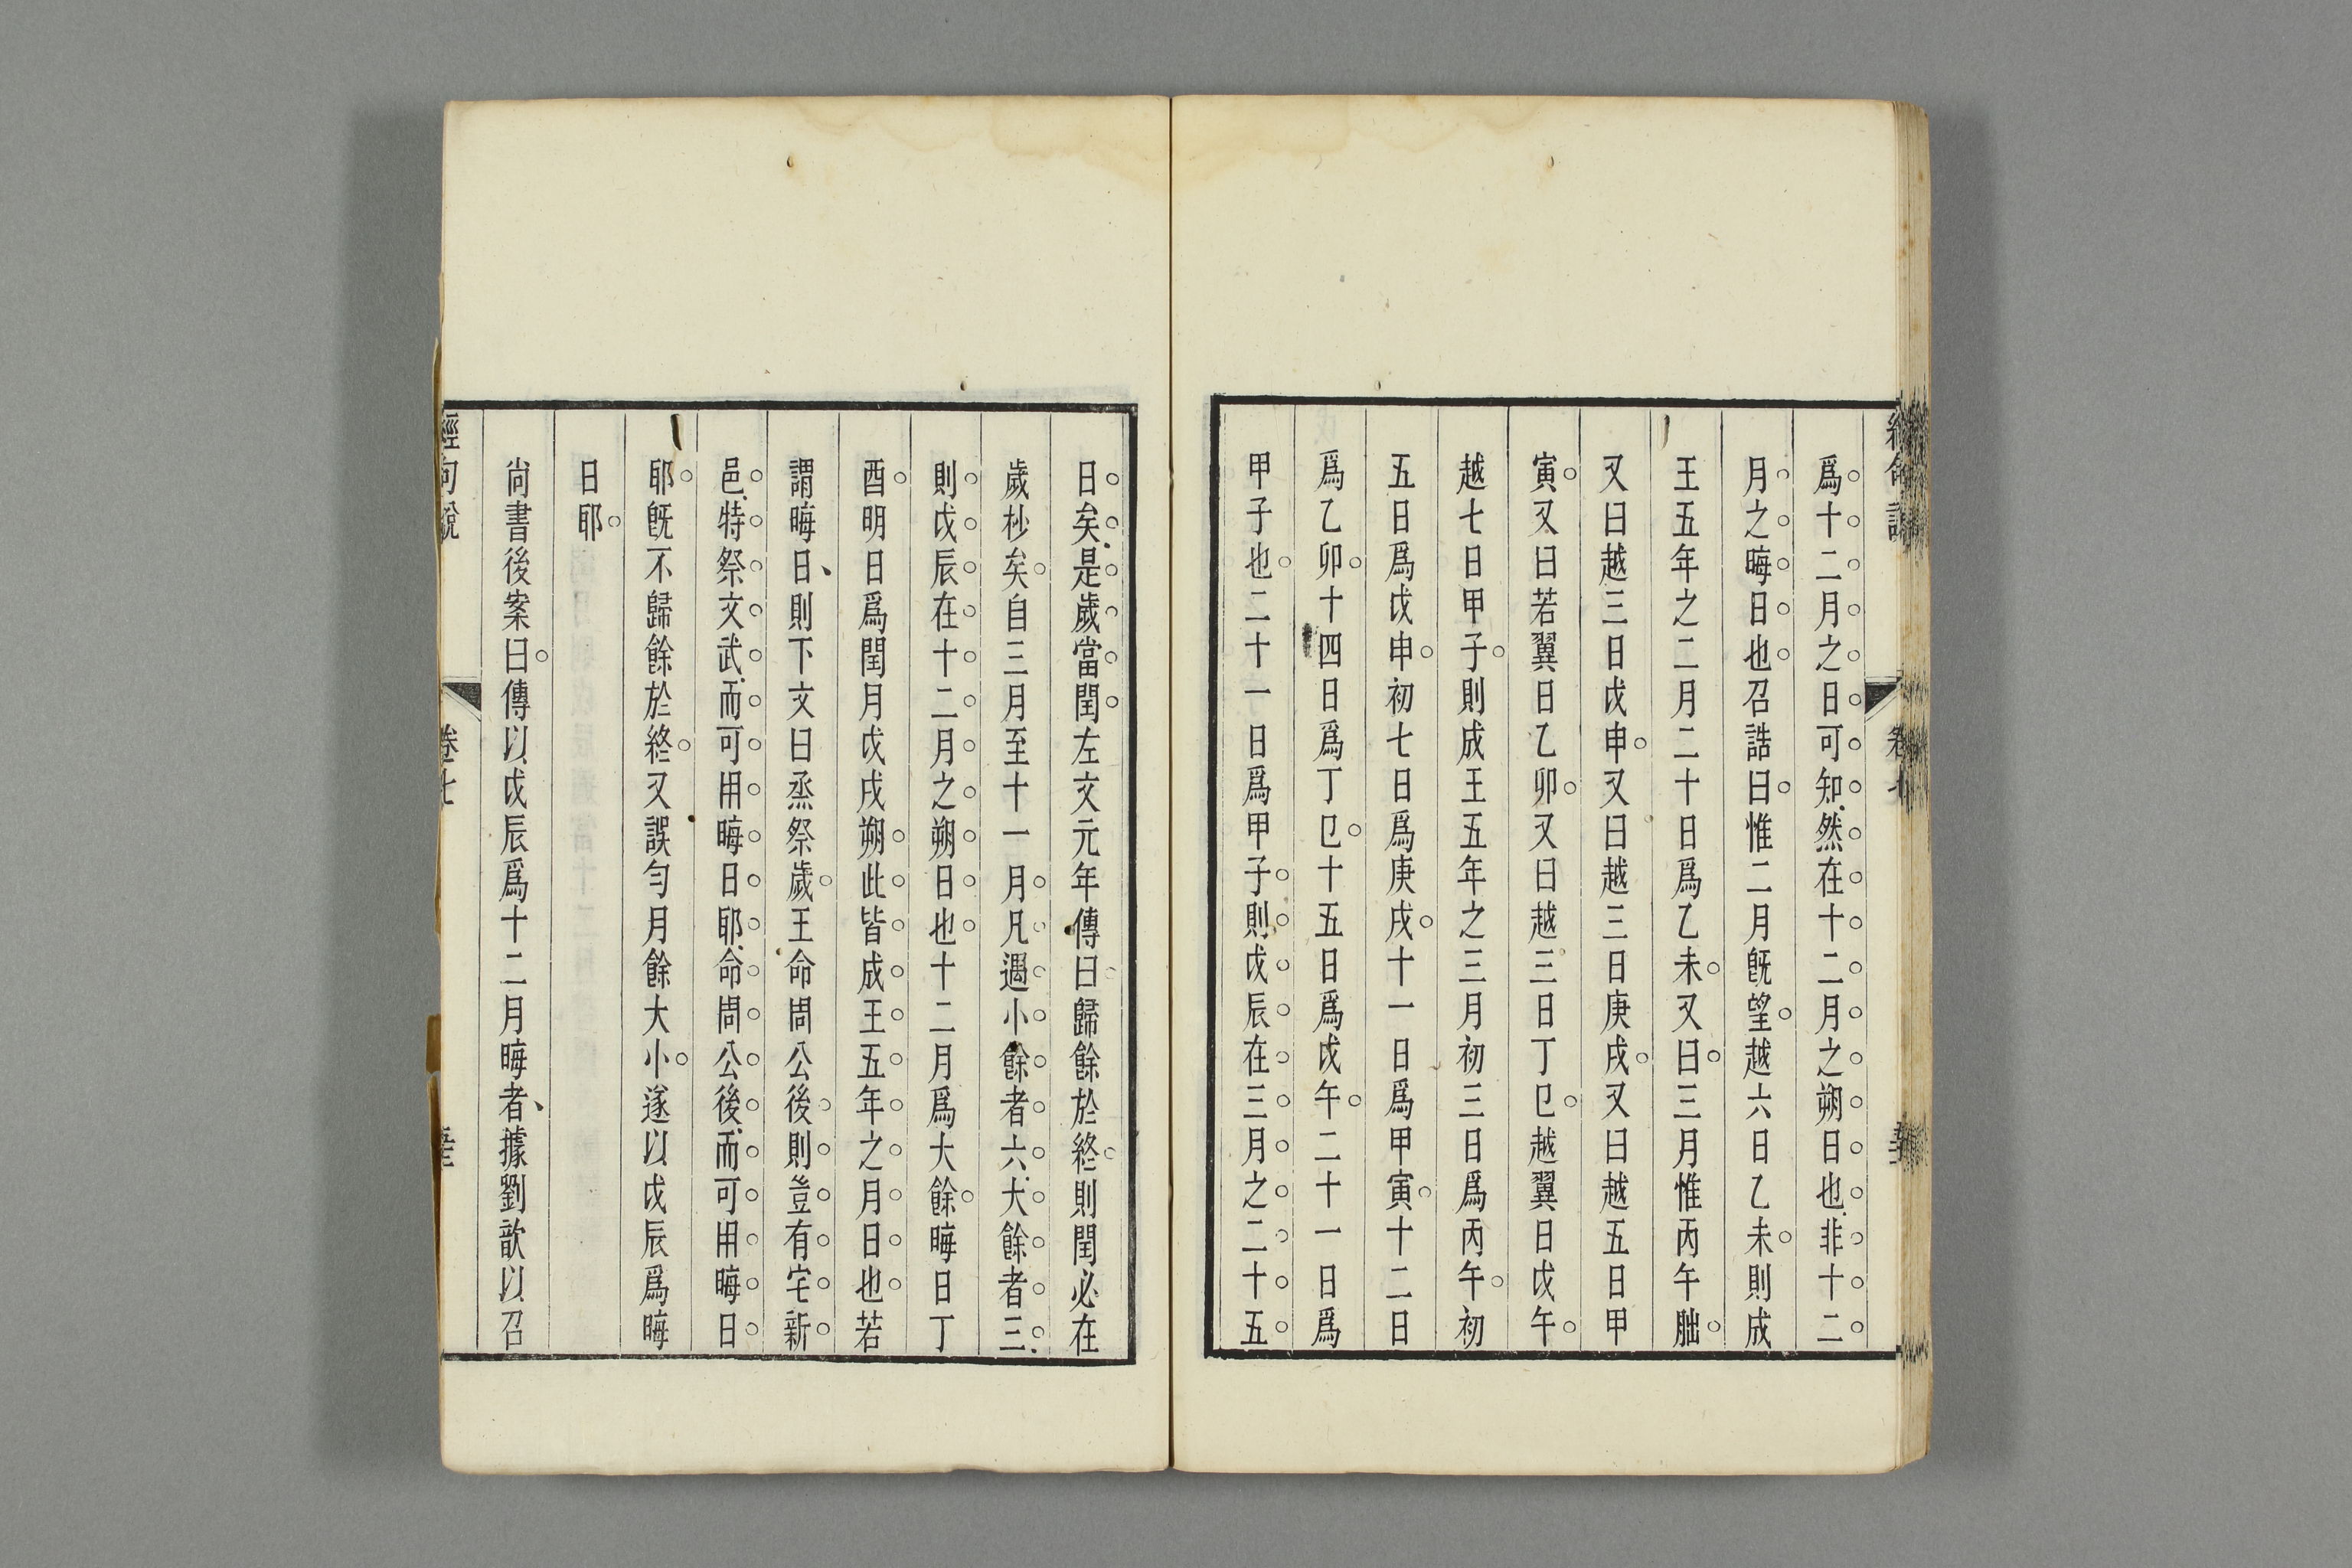 爲十二月之日可知然在十二月之朔日也非十二
月之晦日也召誥曰惟二月旣望越六日乙未則成
王五年之二月二十日爲乙未又曰三月惟丙午朏
又曰越三日戊申又曰越三日庚戌又曰越五日甲
寅又曰若翼日乙卯又曰越三日丁巳越翼日戊午
越七日甲子則成王五年之三月初三日爲丙午初
五日爲戊申初七日爲庚戌十一日爲甲寅十二日
爲乙卯十四日爲丁巳十五日爲戊午二十一日爲
甲子也二十一日爲甲子則戊辰在三月之二十五
日矣是歲當閏左文元年傳曰歸餘於終則閏必在
歲杪矣自三月至十一月凡遇小餘者六大餘者三
則戊辰在十二月之朔日也十二月爲大餘晦日丁
酉明日爲閏月戊戌朔此皆成王五年之月日也若
謂晦日則下文曰烝祭歲王命周公後則豈有宅新
邑特祭文武而可用晦日耶命周公後而可用晦日
耶旣不歸餘於終又誤勻月餘大小遂以戊辰爲晦
日耶
尙書後案曰傳以戊辰爲十二月晦者據劉歆以召
經句說
卷七